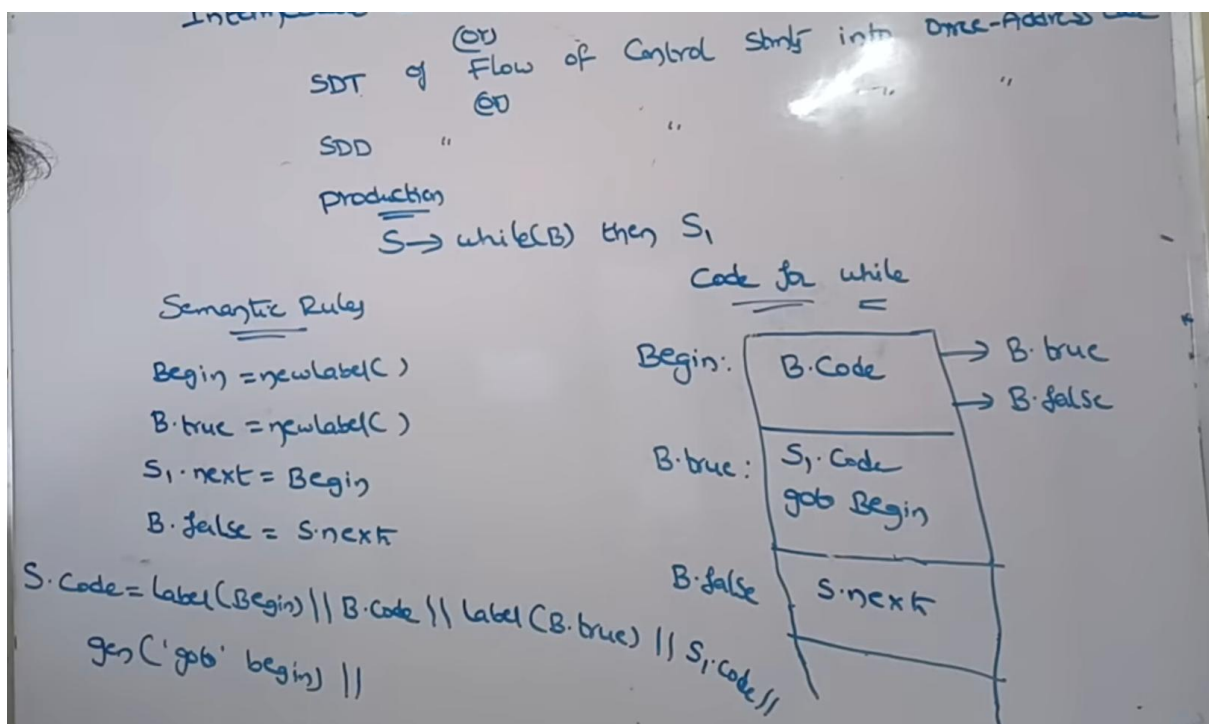 (or)
SDT of Flow of Control Stmts into Three-Address
(or)
SDD " " " "
production
S → while(B) then S₁
Semantic Rules
Begin = newlabel( )
B.true = newlabel( )
S₁.next = Begin
B.false = S.next
S.Code = Label(Begin) || B.Code || Label(B.true) || S₁.Code ||
gen('goto' begin) ||
Code for while
Begin: B.Code → B.true
→ B.false
B.true: S₁.Code
goto Begin
B.false S.next